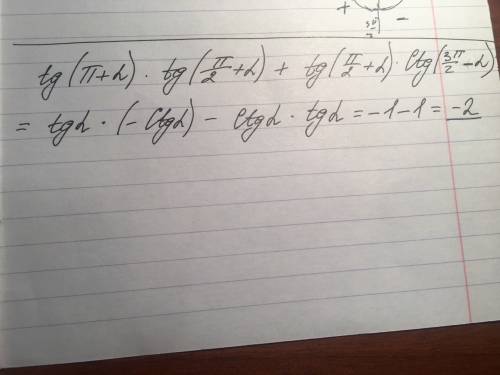 + 3π/2 −
tg(π+α) · tg(π/2+α) + tg(π/2+α) · ctg(3π/2−α)
= tgα · (−ctgα) − ctgα · tgα = −1−1 = −2